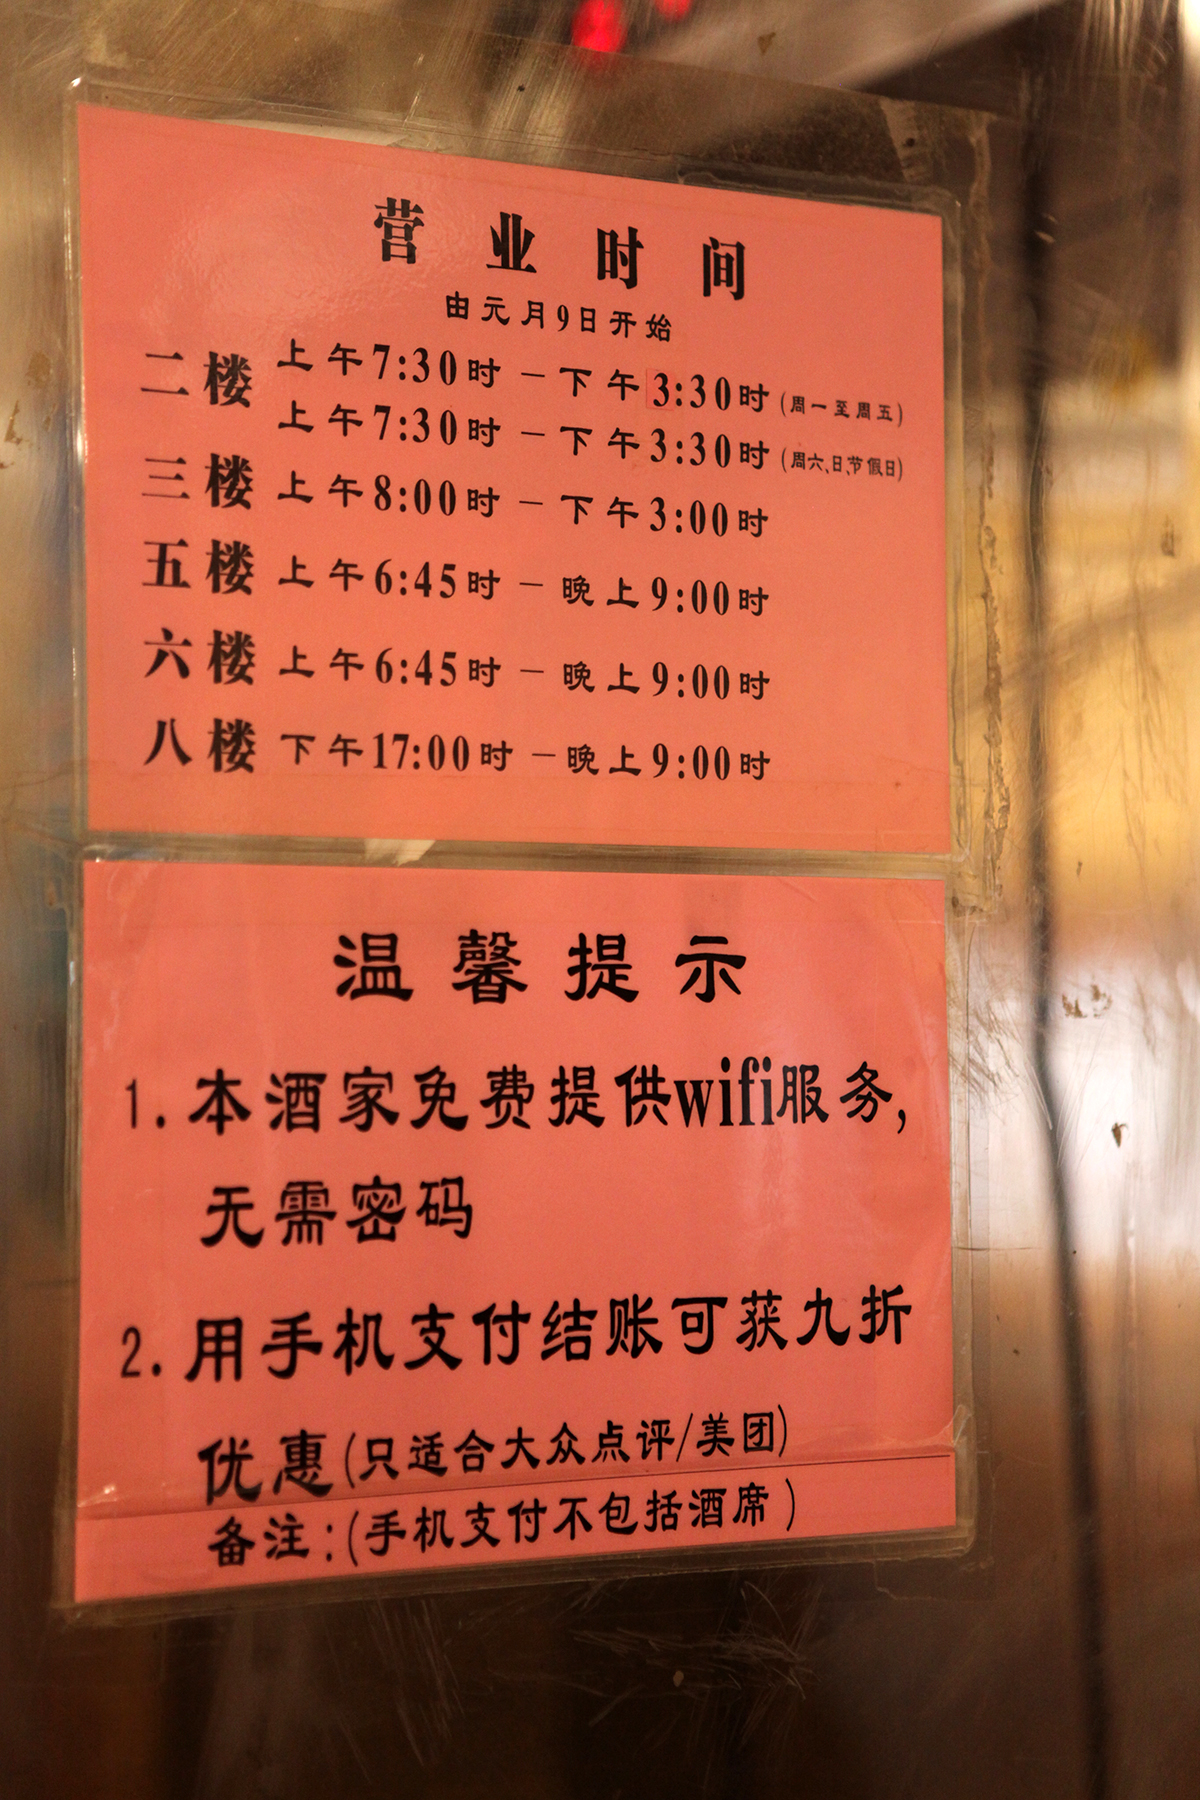 营业时间
由元月9日开始
二楼 上午7:30时 — 下午3:30时 (周一至周五)
上午7:30时 — 下午3:30时 (周六、日、节假日)
三楼 上午8:00时 — 下午3:00时
五楼 上午6:45时 — 晚上9:00时
六楼 上午6:45时 — 晚上9:00时
八楼 下午17:00时 — 晚上9:00时
温馨提示
1.本酒家免费提供wifi服务,
无需密码
2.用手机支付结账可获九折
优惠(只适合大众点评/美团)
备注:(手机支付不包括酒席)